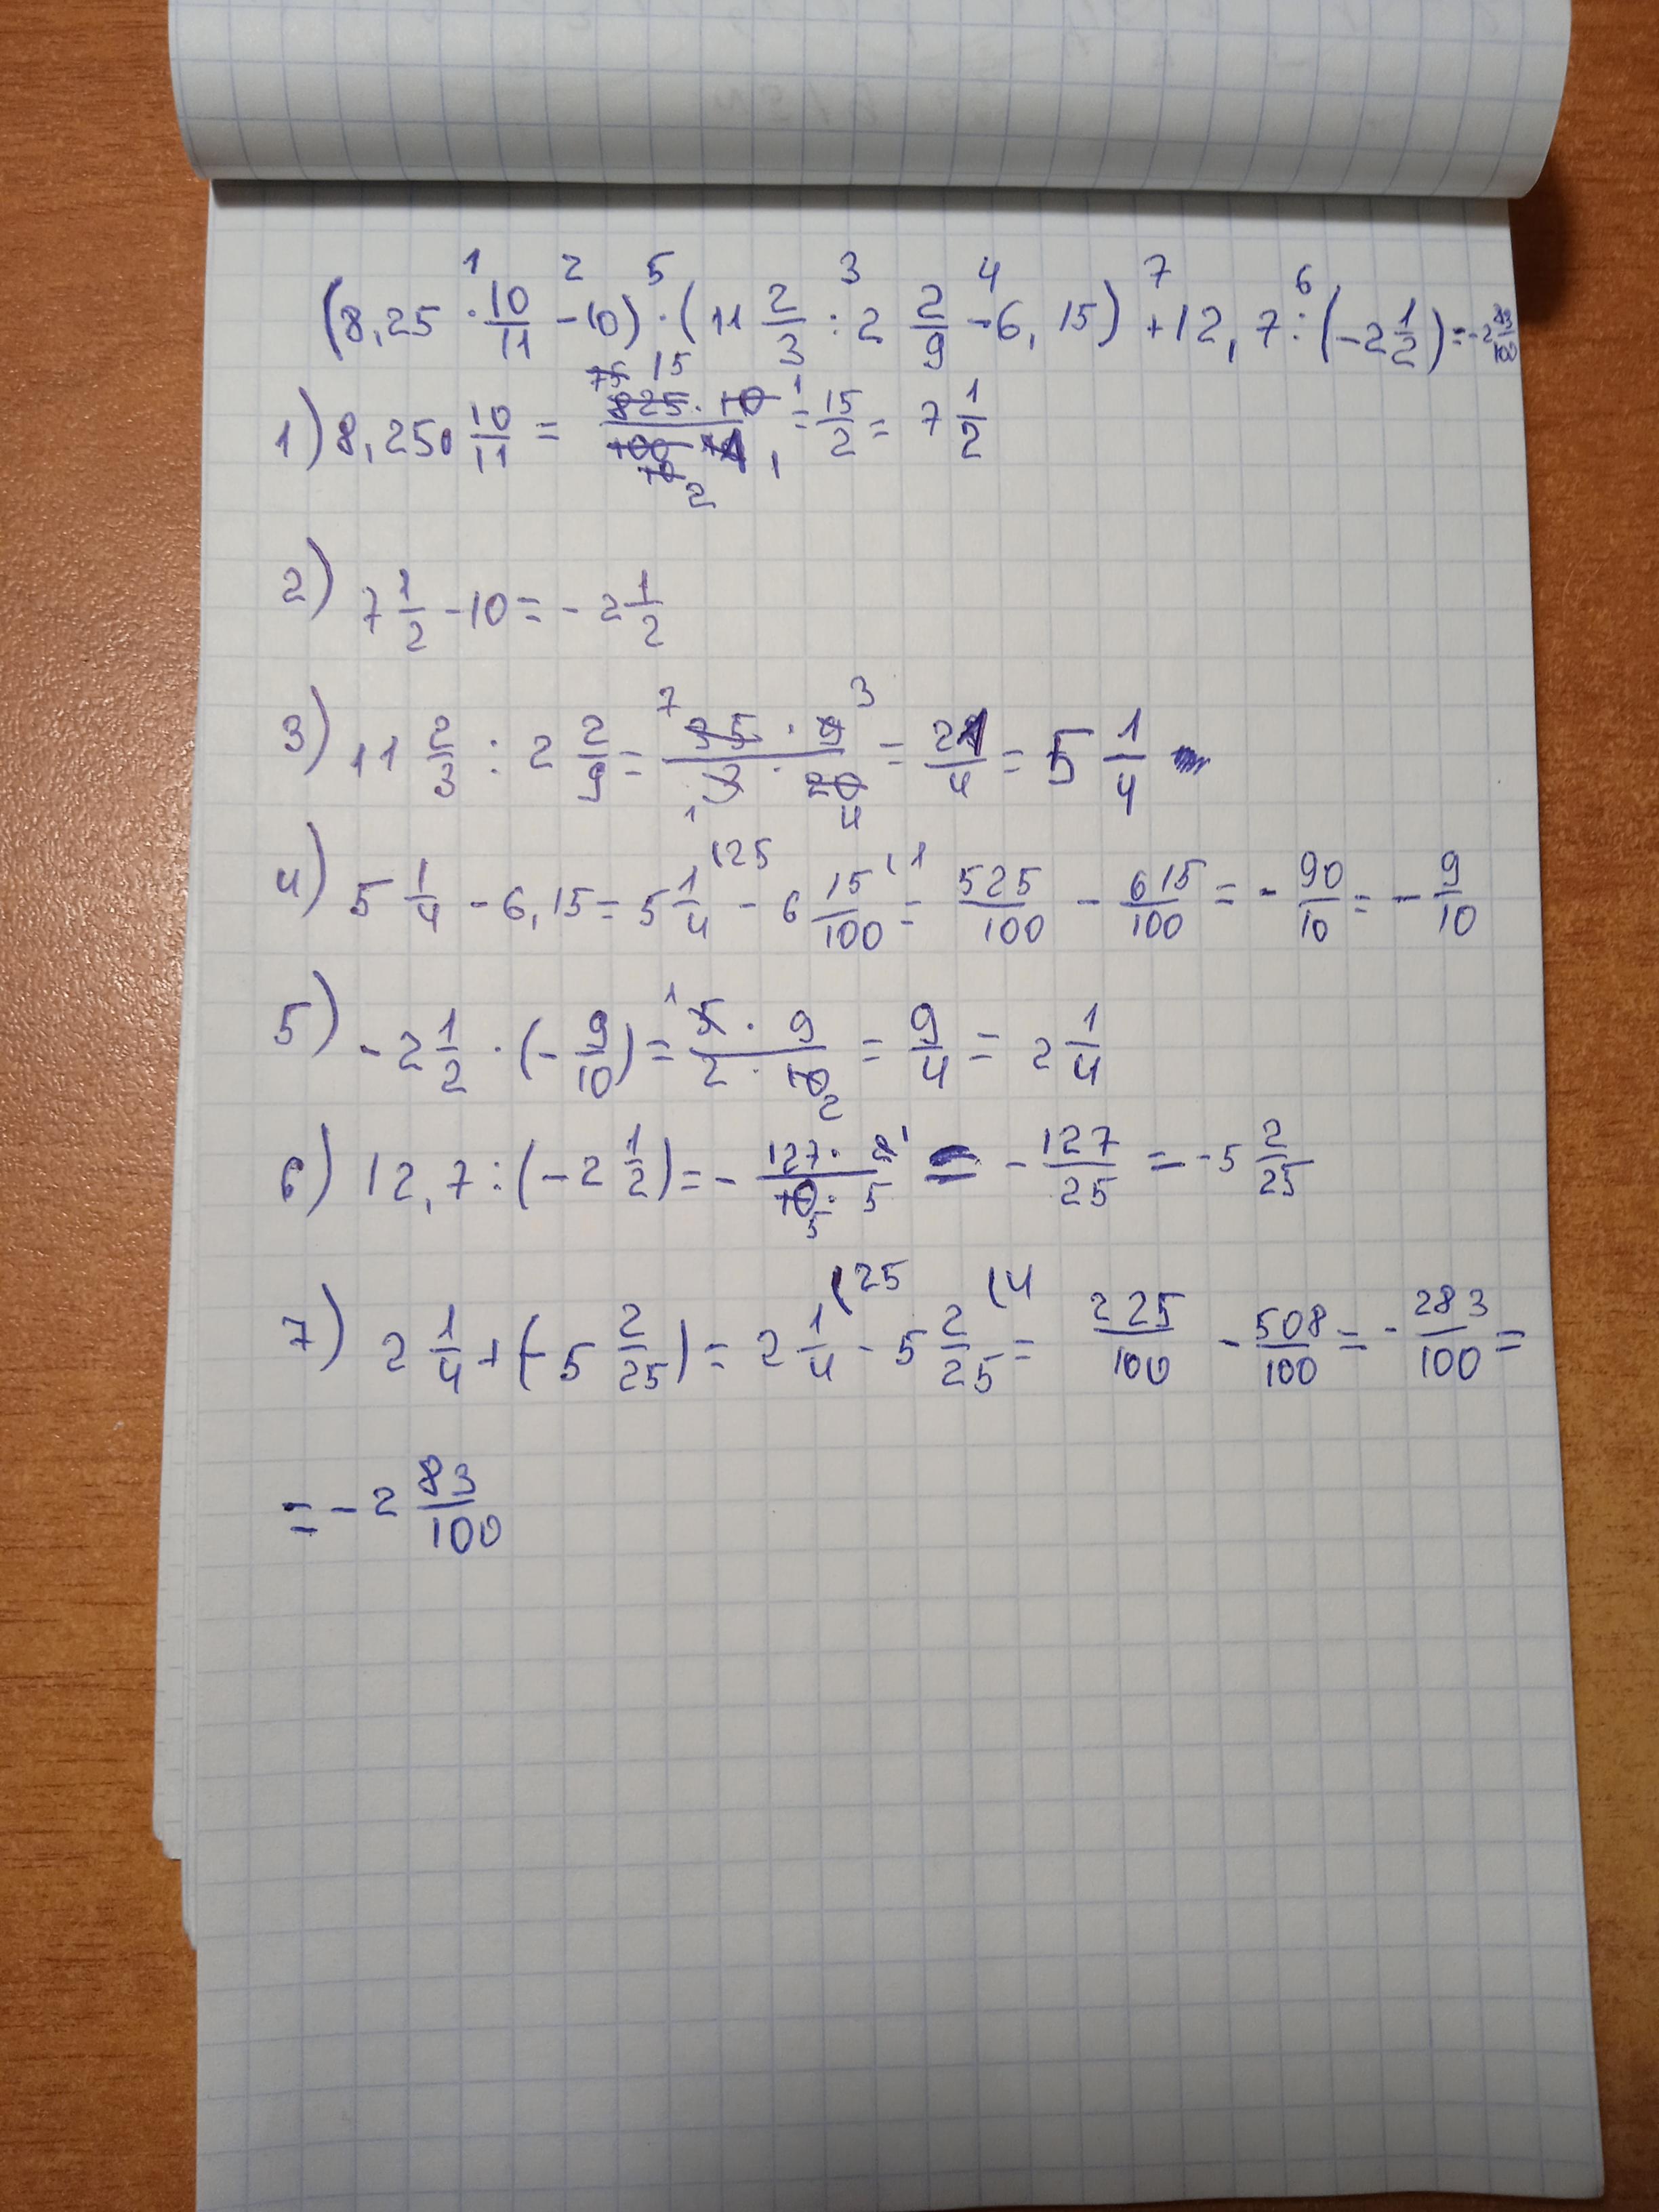 1 2 5 3 4 7 6
(8,25 · 10/11 - 10) · (11 2/3 : 2 2/9 - 6,15) + 12,7 : (-2 1/2) = -2 83/100
1) 8,25 · 10/11 = 825 · 10 / 100 · 11 = 15/2 = 7 1/2
2) 7 1/2 - 10 = - 2 1/2
3) 11 2/3 : 2 2/9 = 35 · 9 / 3 · 20 = 21/4 = 5 1/4
4) 5 1/4 - 6,15 = 5 1/4 (25 - 6 15/100 (1 = 525/100 - 615/100 = - 90/10 = - 9/10
5) - 2 1/2 · (- 9/10) = 5 · 9 / 2 · 10 = 9/4 = 2 1/4
6) 12,7 : (- 2 1/2) = - 127 · 2 / 10 · 5 = - 127/25 = - 5 2/25
7) 2 1/4 + (- 5 2/25) = 2 1/4 (25 - 5 2/25 (4 = 225/100 - 508/100 = - 283/100 =
= - 2 83/100